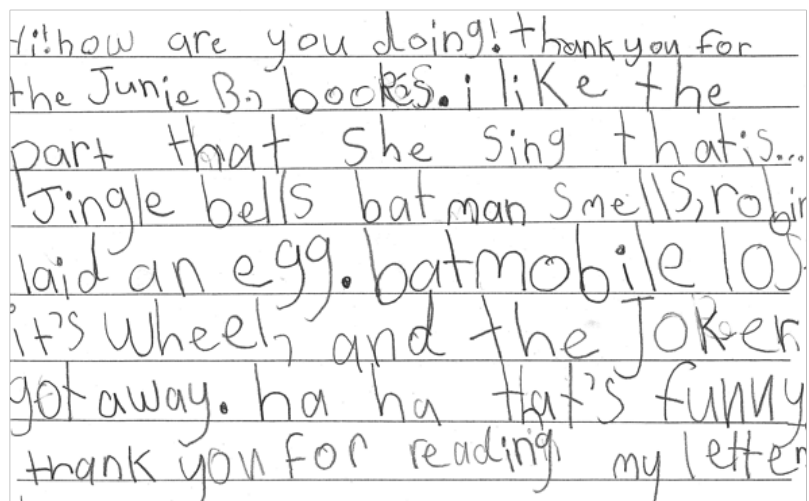 Hi! how are you doing! thank you for
the Junie B., books. i like the
part that she sing that is...
Jingle bells batman smells, robin
laid an egg. batmobile los
it's wheel, and the JoKer
got away. ha ha that's funny
thank you for reading my letter